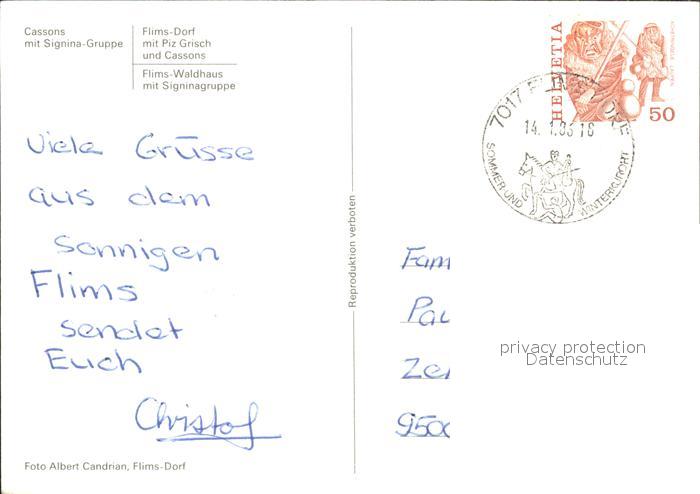 Cassons
mit Signina-Gruppe
Flims-Dorf
mit Piz Grisch
und Cassons
Flims-Waldhaus
mit Signinagruppe
HELVETIA
50
7017 FLIMS DORF
14.1.83 16
SOMMER UND WINTERSPORT
Viele Grüsse
aus dem
Sonnigen
Flims
sendet
Euch
Christof
Reproduktion verboten
Fam
Pau
Ze
9500
privacy protection
Datenschutz
Foto Albert Candrian, Flims-Dorf